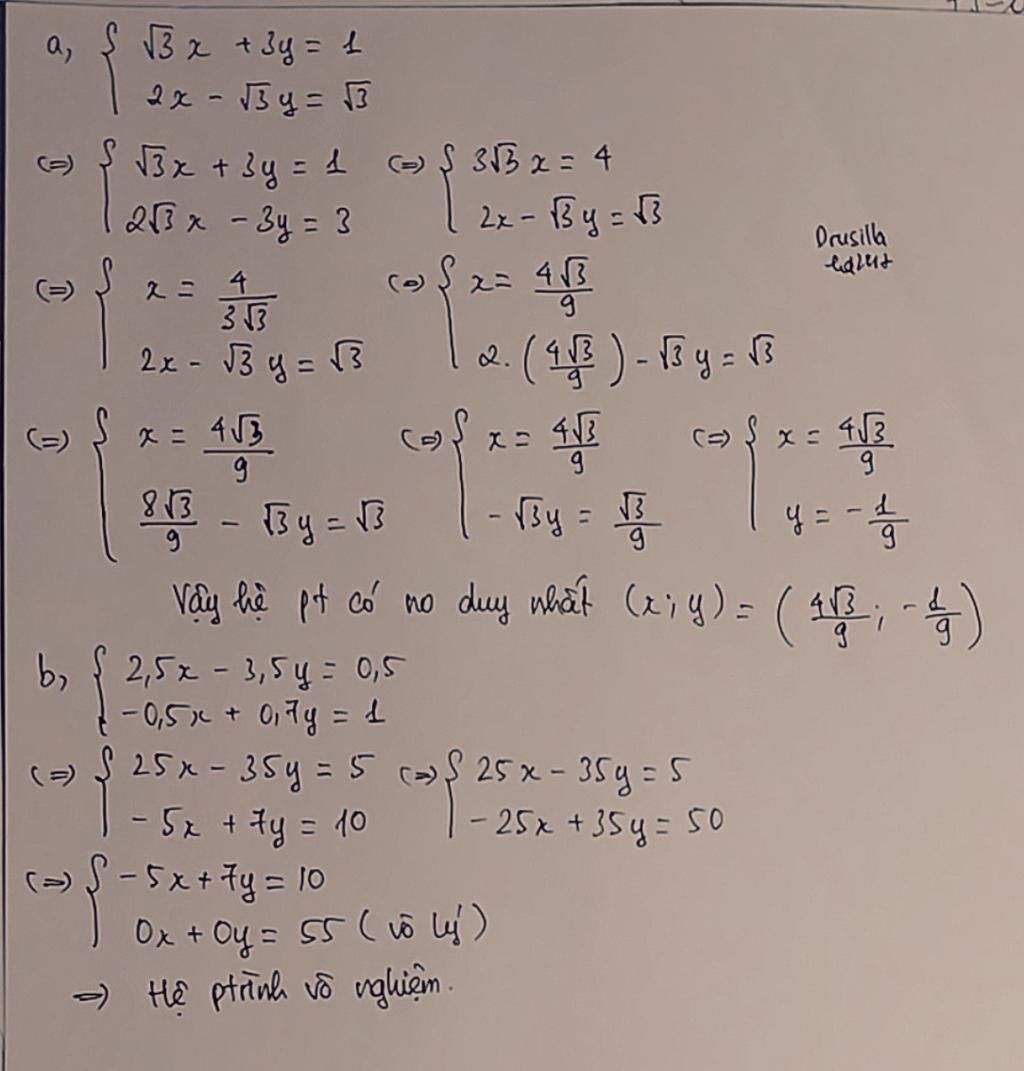 a, { √3 x + 3y = 1
2x - √3 y = √3
(=) { √3 x + 3y = 1 (=) { 3√3 x = 4
2√3 x - 3y = 3 2x - √3 y = √3
Drusilla
(=) { x = 4/(3√3) (=) { x = 4√3/9
2x - √3 y = √3 2. (4√3/9) - √3 y = √3
(=) { x = 4√3/9 (=) { x = 4√3/9 (=) { x = 4√3/9
8√3/9 - √3y = √3 - √3y = √3/9 y = - 1/9
Vậy hệ pt có no duy nhất (x; y) = (4√3/9; - 1/9)
b, { 2,5x - 3,5y = 0,5
-0,5x + 0,7y = 1
(=) { 25x - 35y = 5 (=) { 25x - 35y = 5
- 5x + 7y = 10 - 25x + 35y = 50
(=) { - 5x + 7y = 10
0x + 0y = 55 (vô lý)
=) Hệ ptrình vô nghiệm.